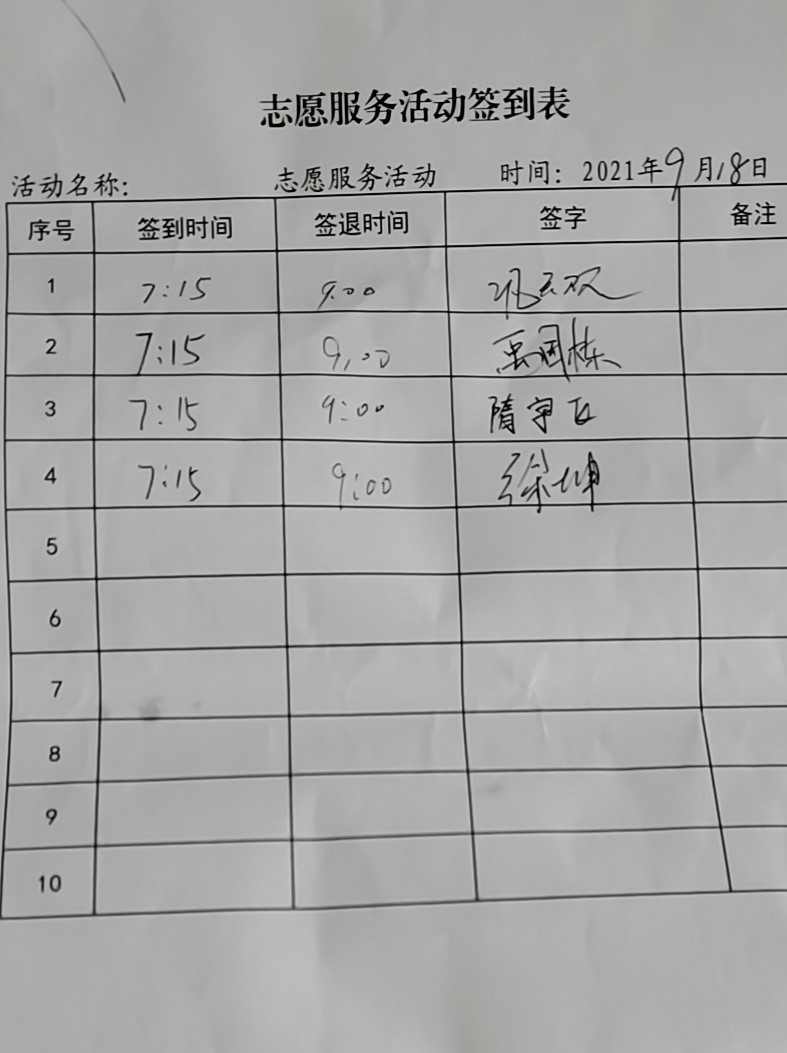 志愿服务活动签到表
活动名称: 志愿服务活动 时间: 2021年9月18日
序号 签到时间 签退时间 签字 备注
1 7:15 9:00
2 7:15 9:00 禹国栋
3 7:15 9:00 隋宇飞
4 7:15 9:00 徐坤
5
6
7
8
9
10